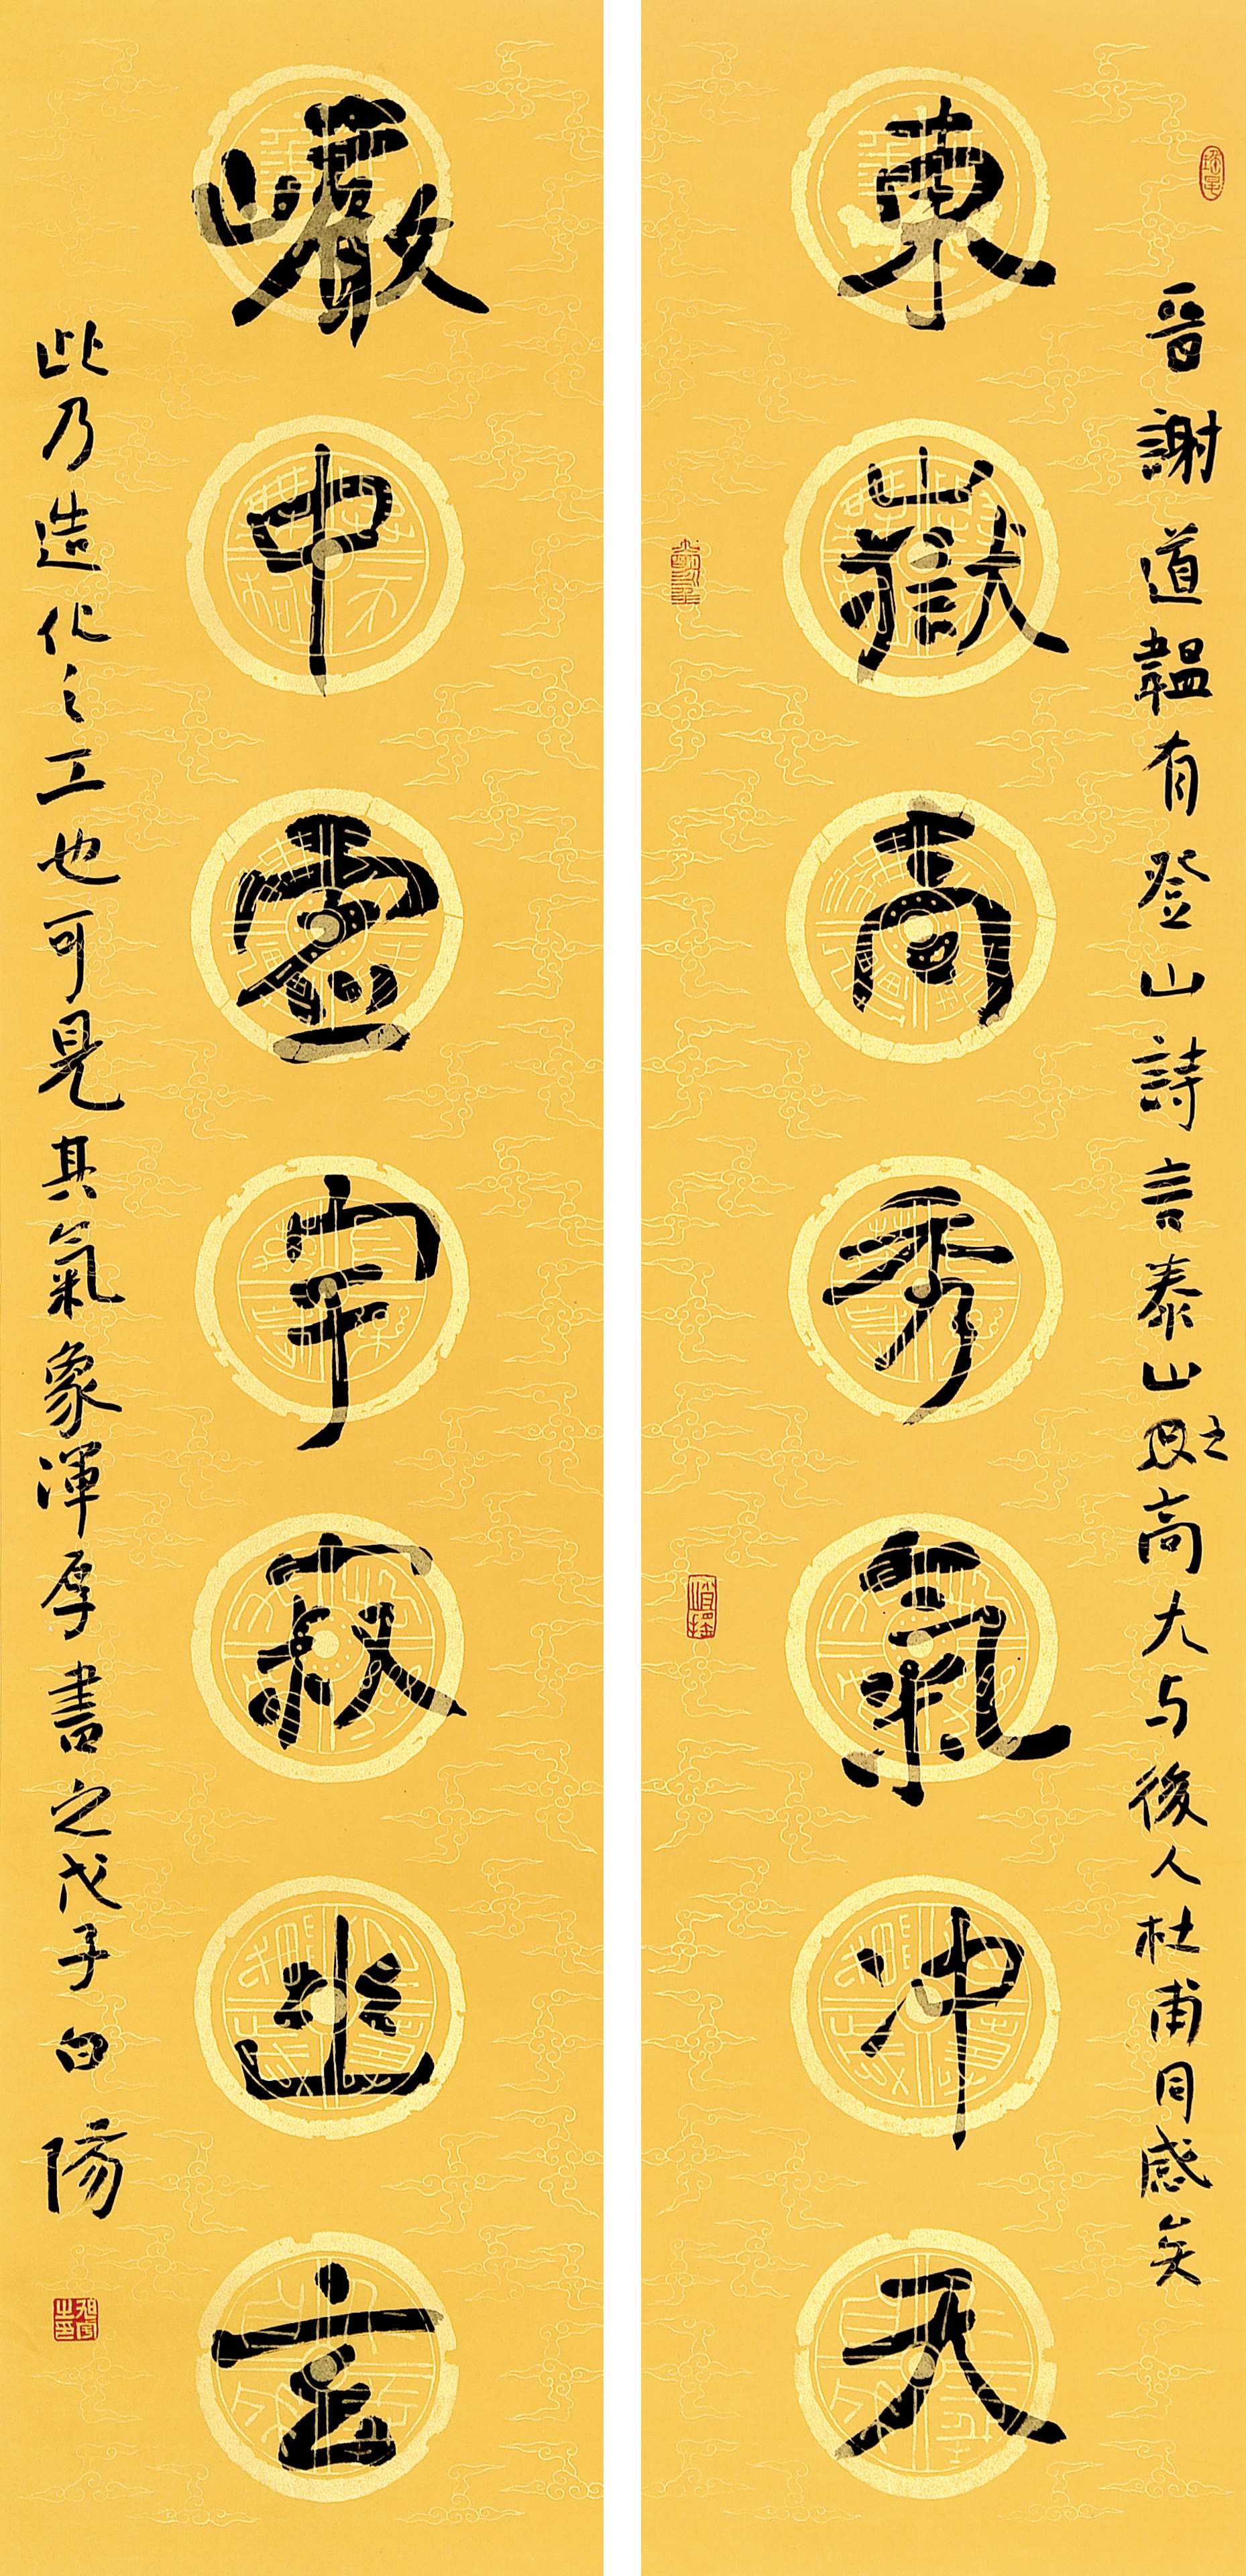 晋謝道韞有登山詩言泰山之高大与後人杜甫同感矣
東嶽高秀氣冲天
巖中虛宇寂幽玄
此乃造化之工也可見其氣象渾厚書之戊子白陽